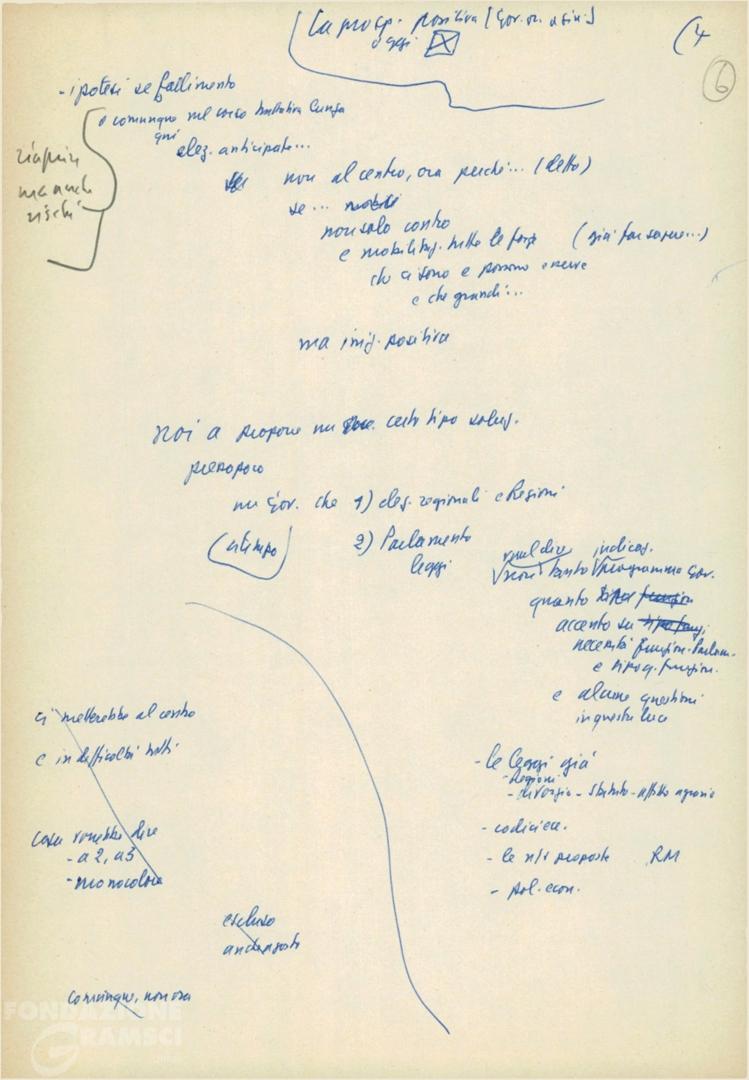 La prosp. positiva [Gov. or. a sin.]
oggi
(4
6
- ipotesi se fallimento
e comunque nel corso trattativa lunga
qui
elez. anticipate...
riaprire
ma anche
rischi
non al centro, ora perché... (detto)
se...
non solo contro
e mobilitaz. tutte le forze (già far sapere...)
che ci sono e possono essere
e che grandi...
ma iniz. positiva
noi a proporre un certo tipo soluz.
un Gov. che 1) elez. regionali e Regioni
(a tempo) 2) Parlamento
leggi
vuol dire indicaz.
non tanto programma Gov.
quanto
accento su
necessità funzion. Parlam.
e funzion.
e alcune questioni
in questa luce
ci metterebbe al centro
e in difficoltà tutti
cosa vorrebbe dire
- a 2, a 3
- monocolore
- le leggi già
- Regioni
- divorzio - statuto - affitto agrario
- codice
- le n/s proposte RM
- pol. econ.
escluso
anche agosto
comunque, non ora
FONDAZIONE
GRAMSCI